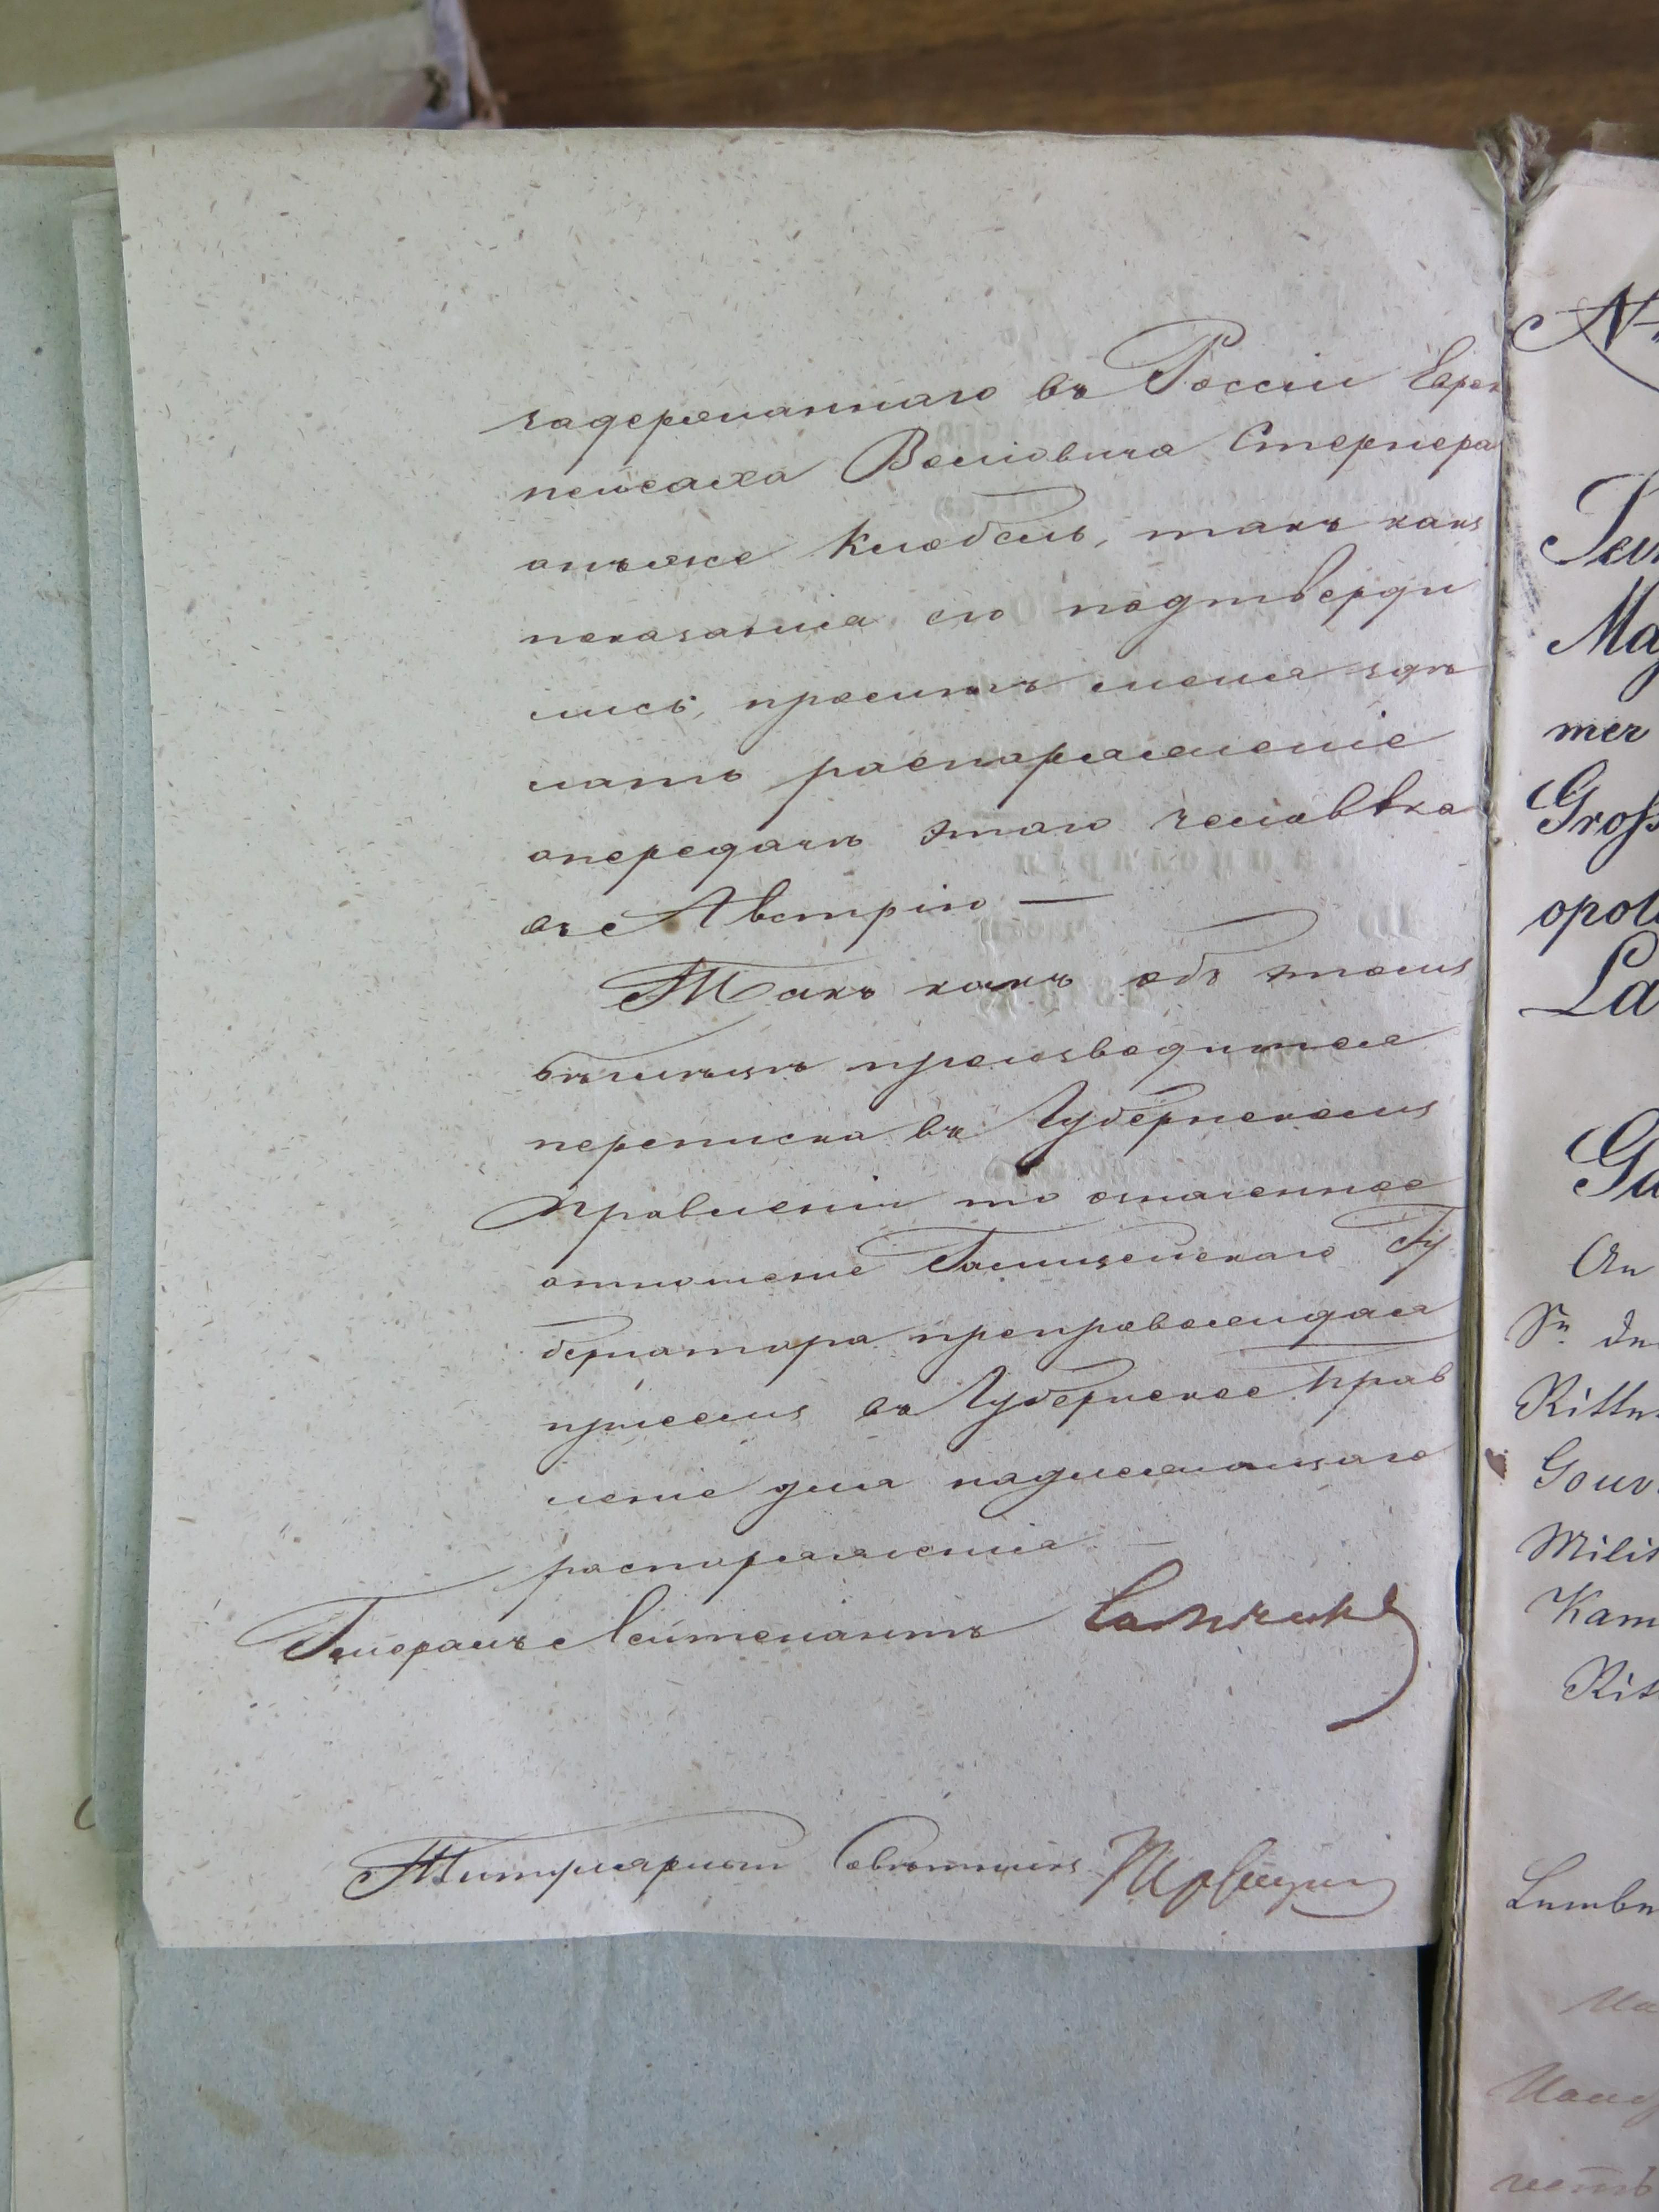 задержаннаго въ Россіи Евре
пейсаха Волковича Стернера
онъже Кнобель, такъ какъ
показанія его подтверди
лись, проситъ меня сдѣ
лать распоряженіе
опередачѣ этаго человѣка
въ Австрію —
Такъ какъ объ этомъ
бѣглецѣ производится
переписка въ Губернскомъ
Правленіи то означенное
отношеніе Галицейскаго Гу
бернатора препровождая
присемъ въ Губернское Прав
леніе для надлежащаго
распоряженія. —
Генералъ Лейтенантъ
Титулярный Совѣтникъ
№
Ma
mer
Gross
opol
La
Ga
An
Sr. de
Ritter
Gouv
Milit
Kam
Rit
Lembe